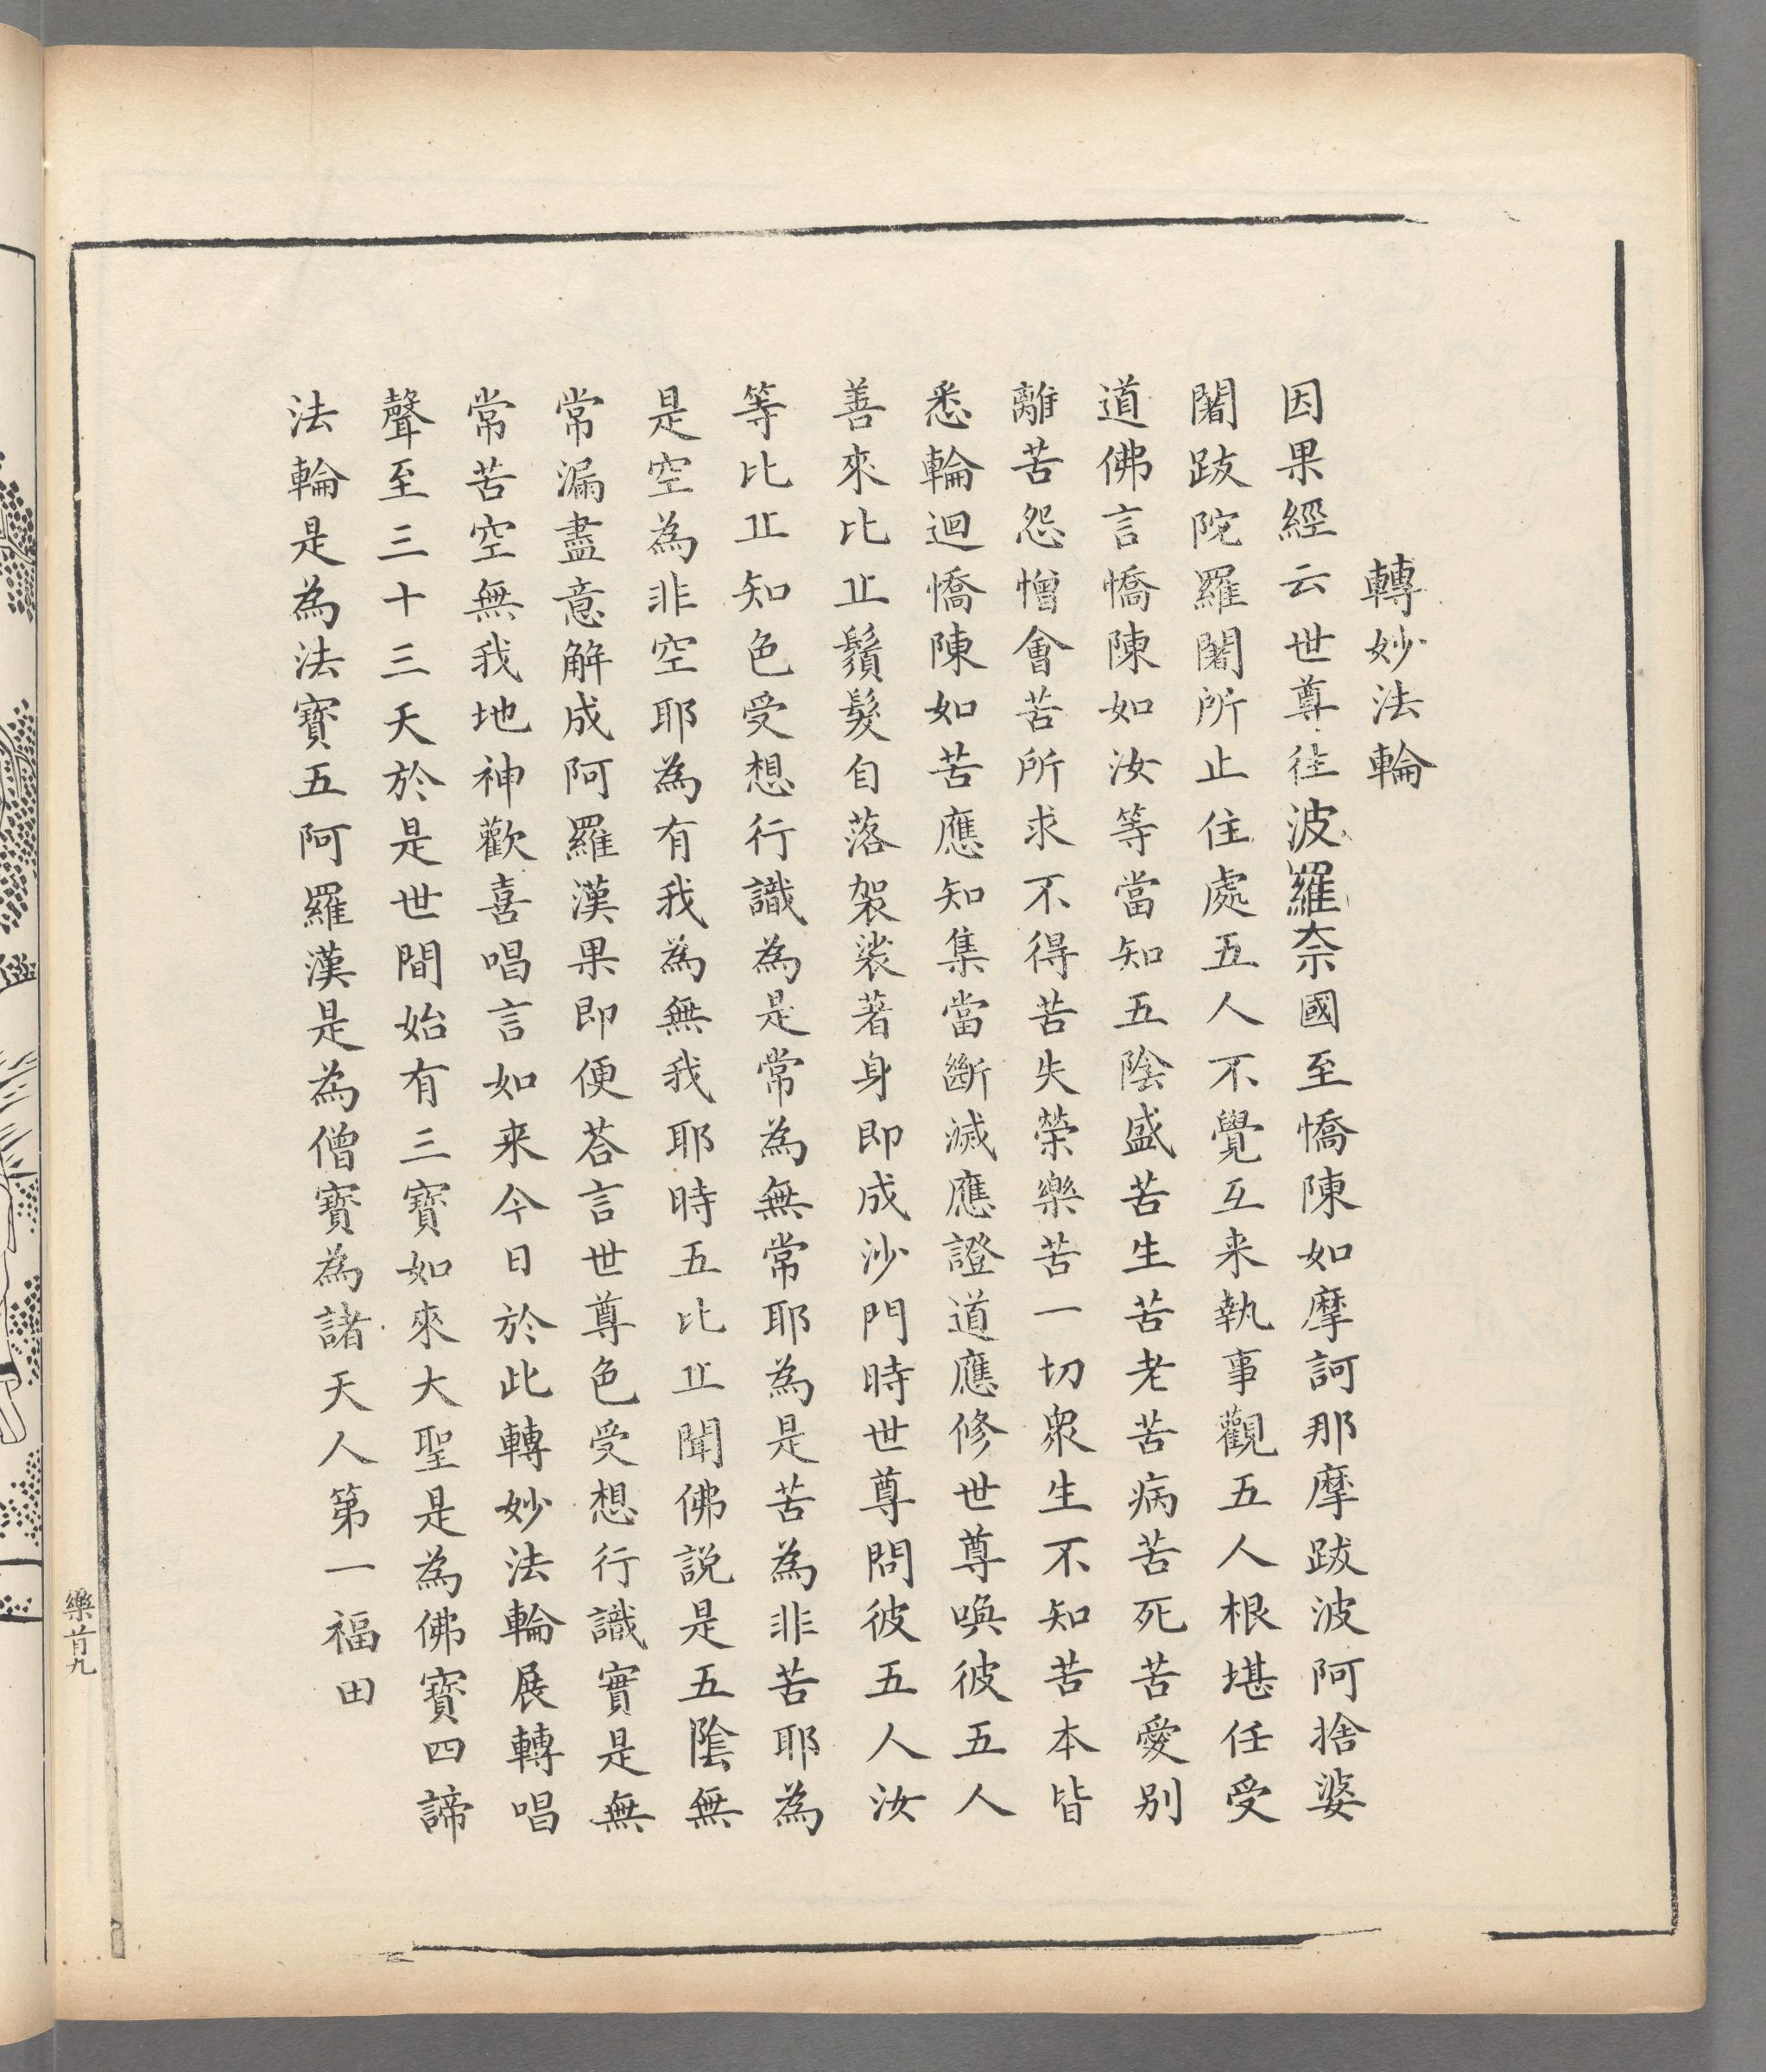 轉妙法輪
因果經云世尊往波羅奈國至憍陳如摩訶那摩跋波阿捨婆
闍跋陀羅闍所止住處五人不覺互来執事觀五人根堪任受
道佛言憍陳如汝等當知五陰盛苦生苦老苦病苦死苦愛别
離苦怨憎會苦所求不得苦失榮樂苦一切衆生不知苦本皆
悉輪迴憍陳如苦應知集當斷滅應證道應修世尊喚彼五人
善來比丘鬚髮自落袈裟著身即成沙門時世尊問彼五人汝
等比丘知色受想行識為是常為無常耶為是苦為非苦耶為
是空為非空耶為有我為無我耶時五比丘聞佛説是五陰無
常漏盡意解成阿羅漢果即便荅言世尊色受想行識實是無
常苦空無我地神歡喜唱言如来今日於此轉妙法輪展轉唱
聲至三十三天於是世間始有三寳如來大聖是為佛寳四諦
法輪是為法寳五阿羅漢是為僧寳為諸天人第一福田
樂首九